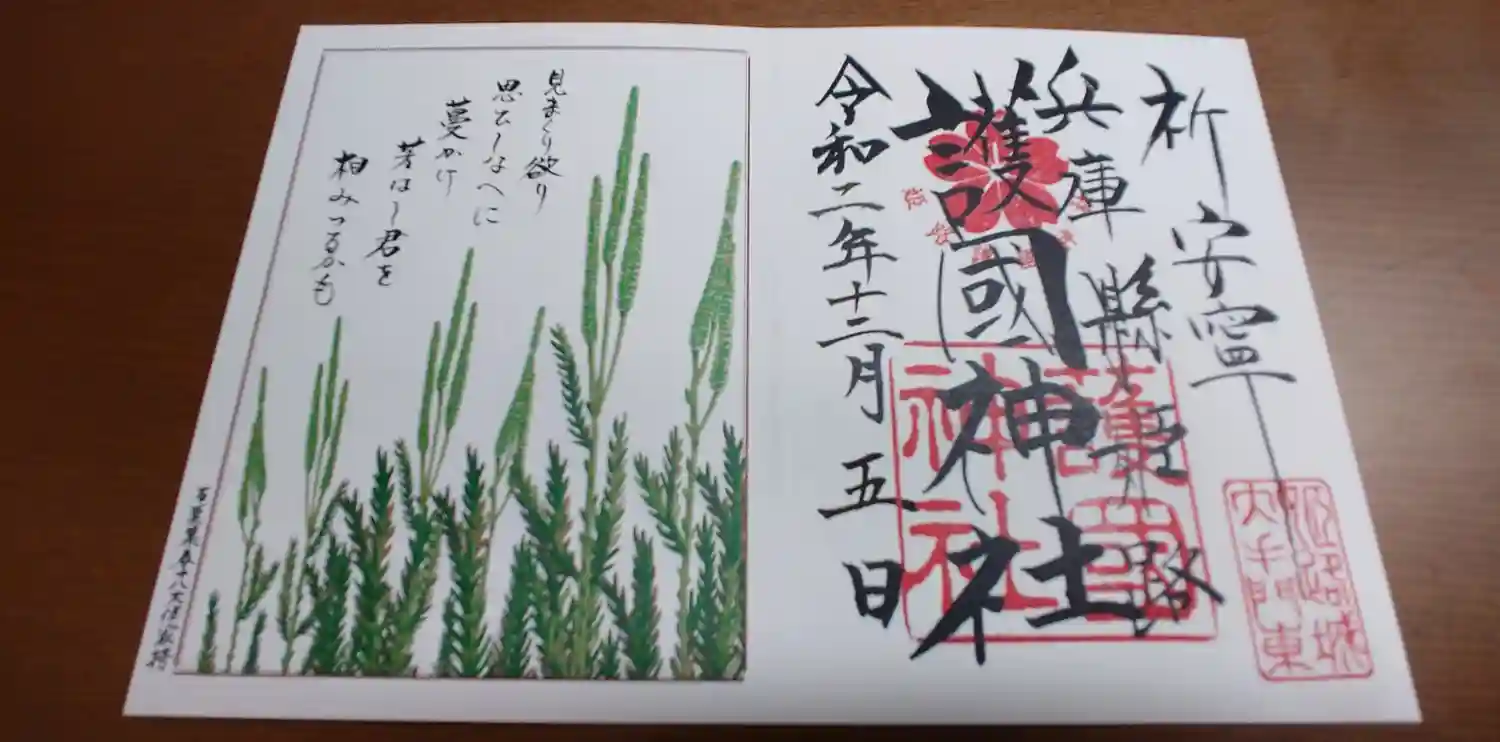 祈安寧
兵庫縣姫路
護國神社
令和二年十二月五日
護國
神社
姫路城
大手門東
見まく欲り
思ひしなへに
蔓かけ
芳はし君を
相みつるかも
万葉集 巻十八 大伴家持